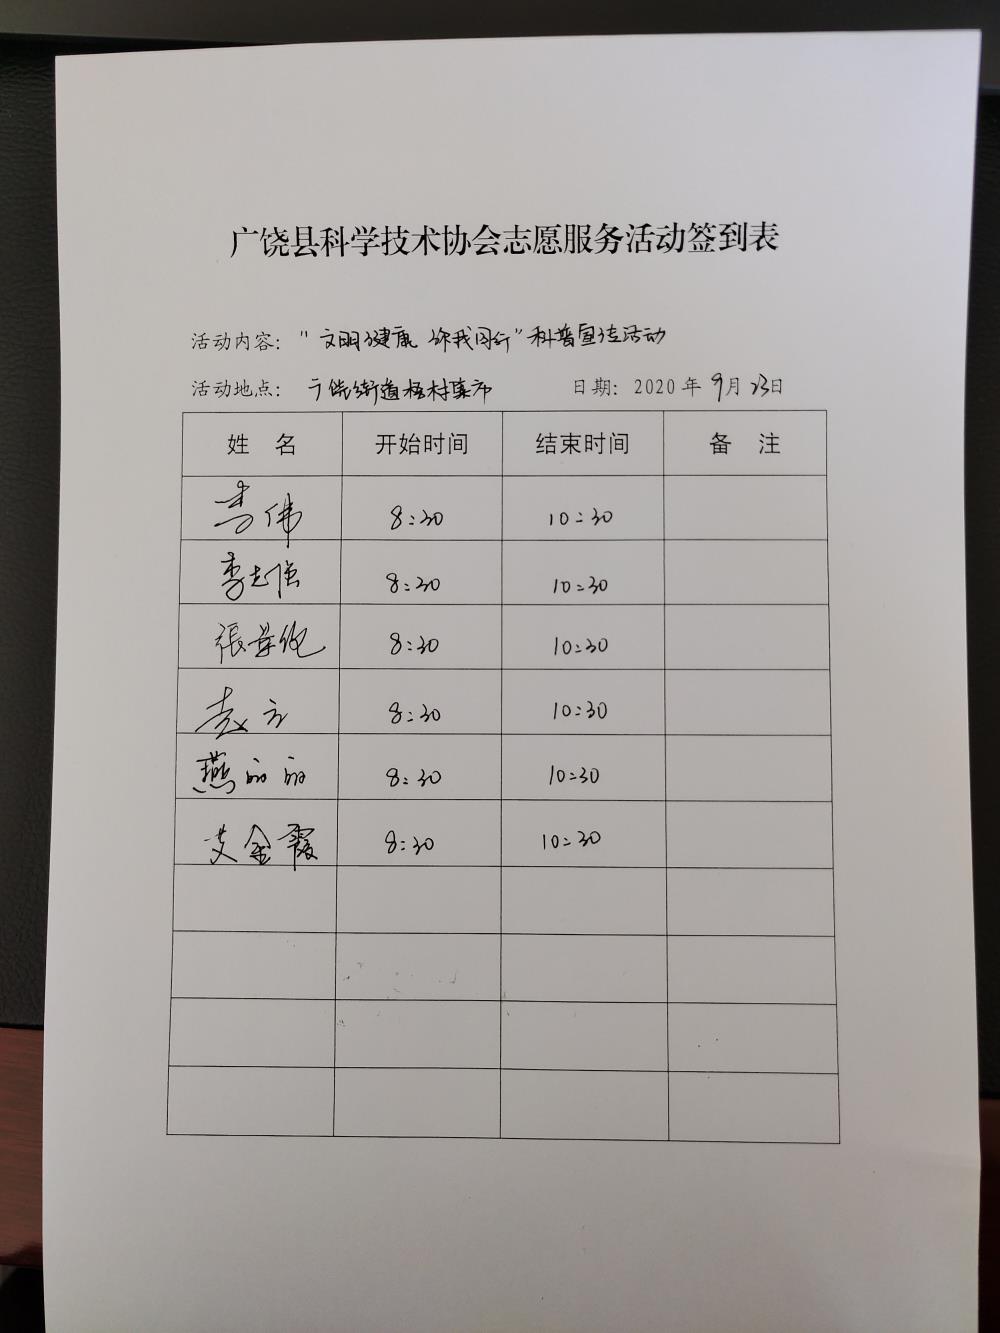 广饶县科学技术协会志愿服务活动签到表
活动内容："文明健康 你我同行"科普宣传活动
活动地点：广饶街道梧村集市 日期：2020年9月23日
姓 名 开始时间 结束时间 备 注
李伟 8:30 10:30
李志强 8:30 10:30
張 8:30 10:30
赵 8:30 10:30
燕丽丽 8:30 10:30
艾金霞 8:30 10:30